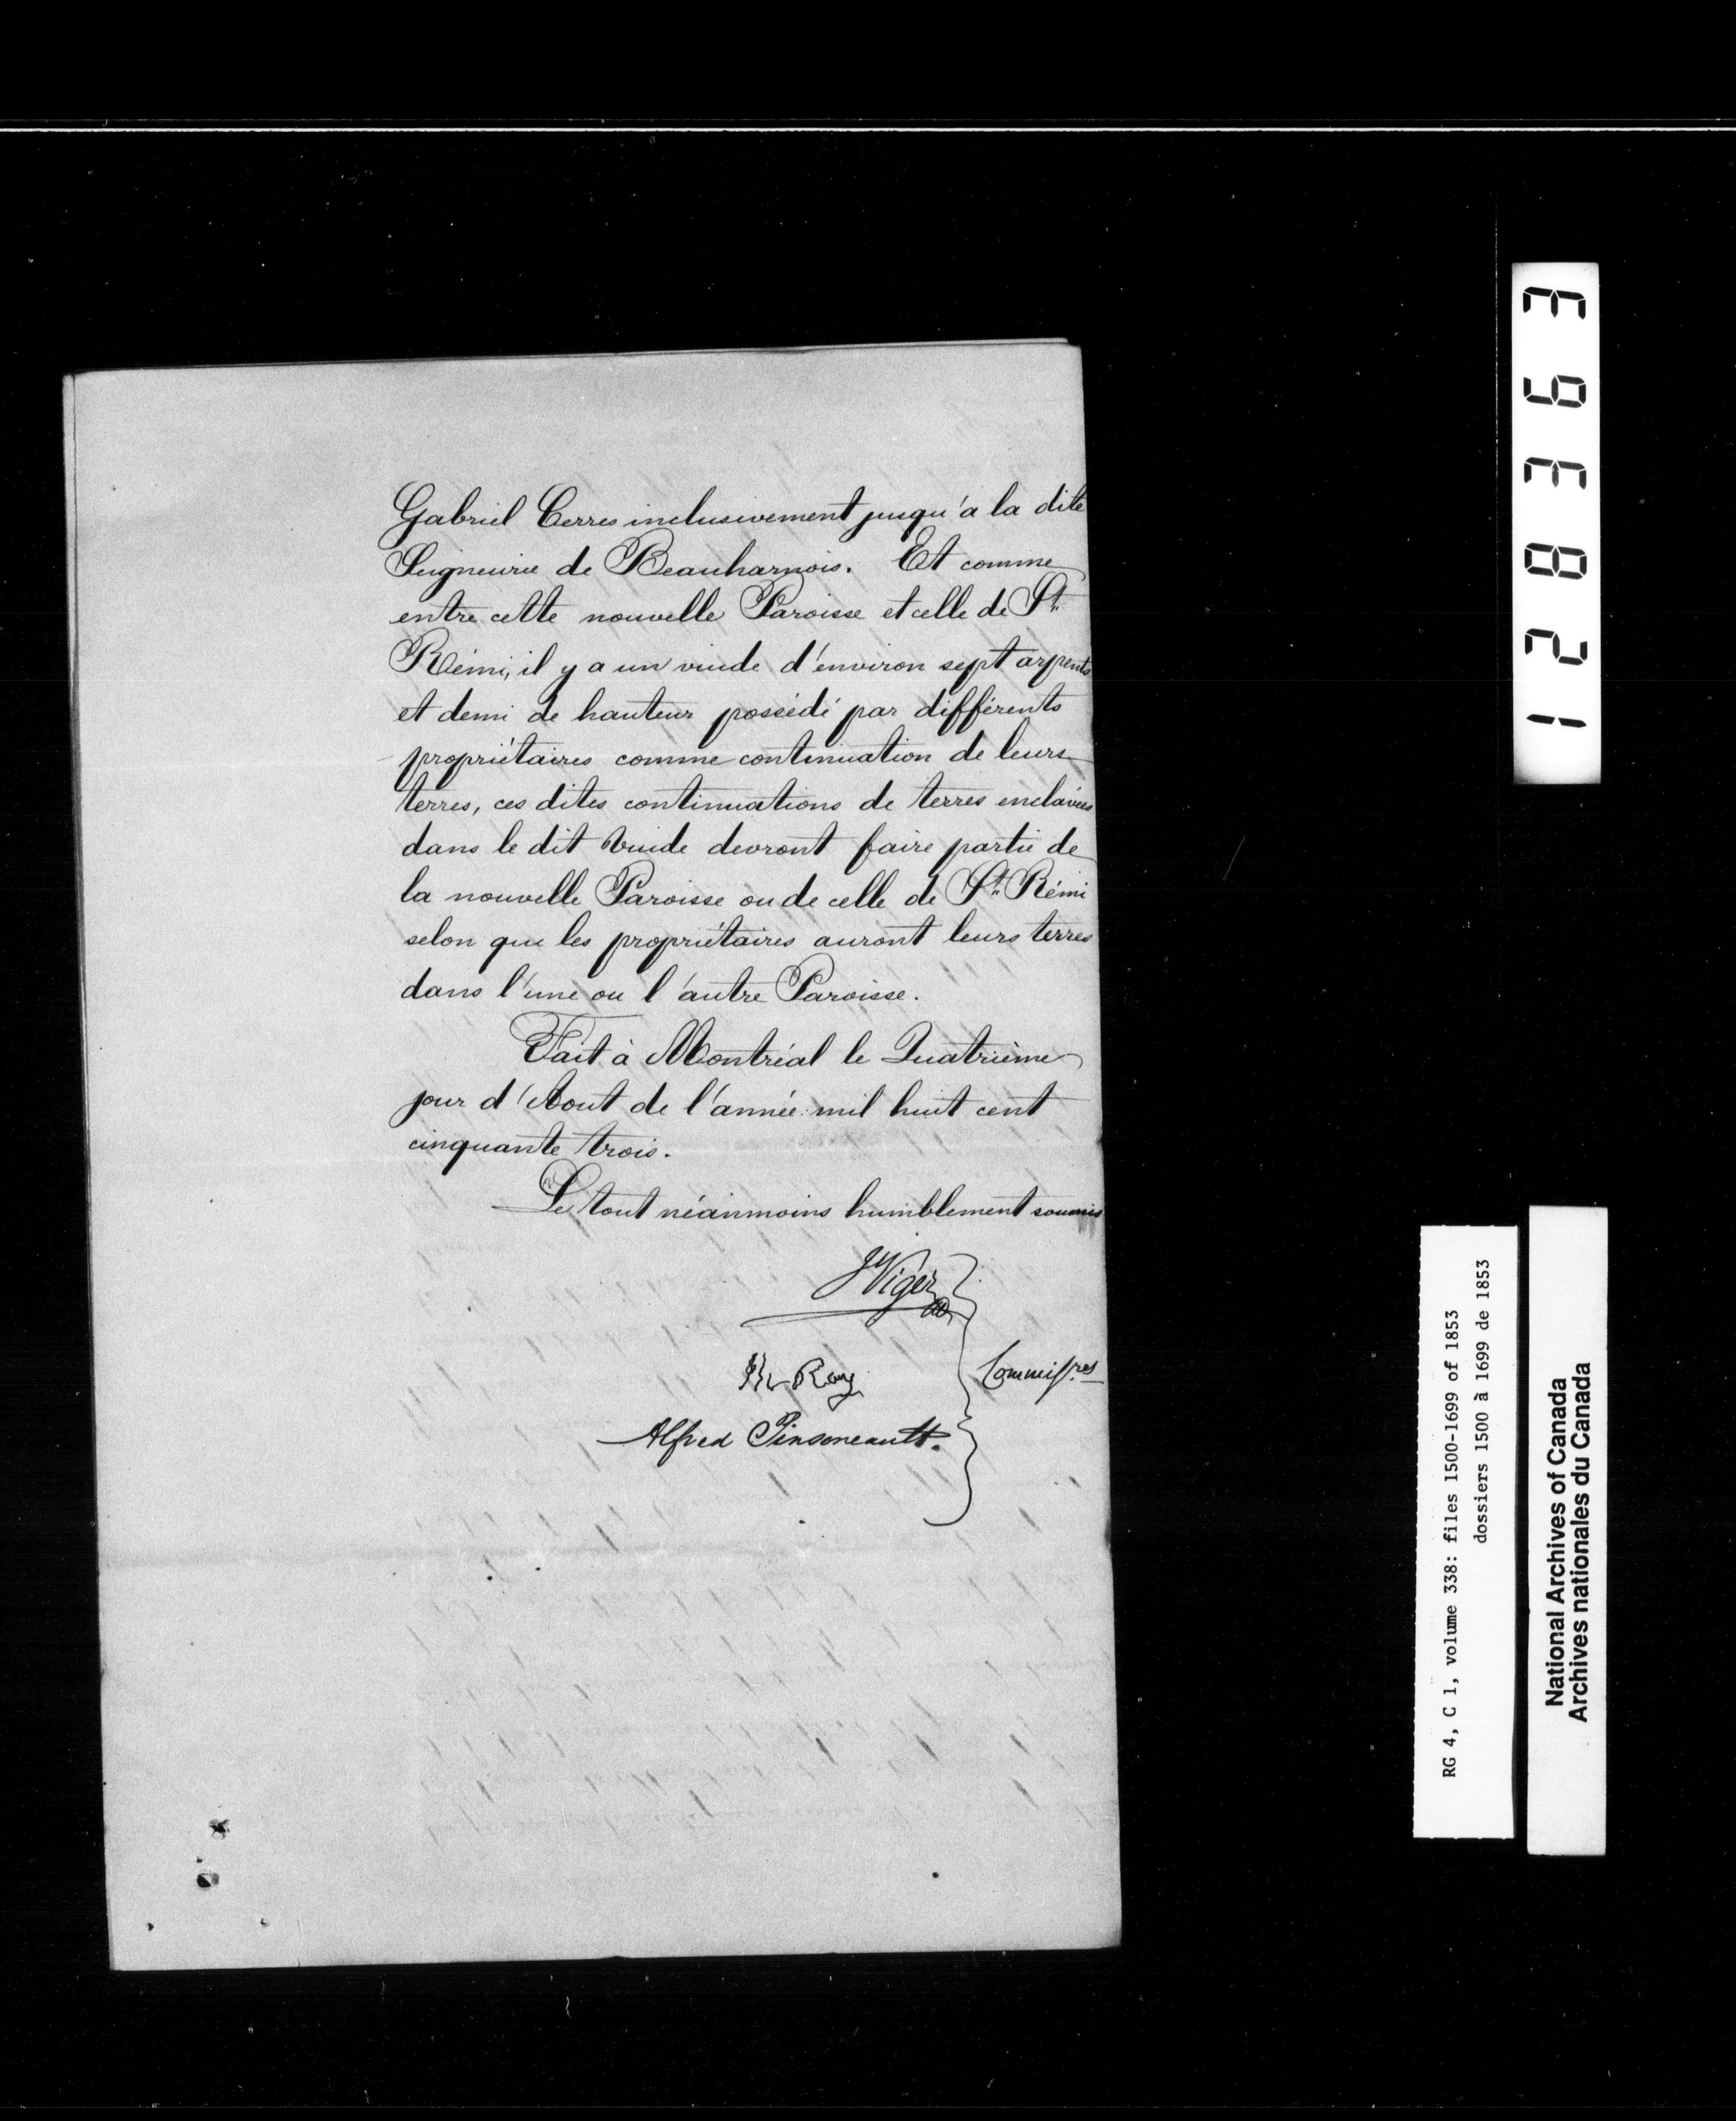 Gabriel Cerres inclusivement jusqu'a la dite
Seigneurie de Beauharnois. Et comme
entre cette nouvelle Paroisse et celle de St.
Rémi, il y a un vuide d'environ sept arpents
et demi de hauteur possédé par différents
propriétaires comme continuation de leurs
terres, ces dites continuations de terres enclavées
dans le dit Vuide devront faire partie de
la nouvelle Paroisse ou de celle de St. Rémi
selon que les propriétaires auront leurs terres
dans l'une ou l'autre Paroisse.
Fait à Montréal le Quatrième
jour d'Aout de l'année mil huit cent
cinquante trois.
Le tout néanmoins humblement soumis
J Viger
Roy
Commissres
Alfred Pinsoneault.
128363
RG 4, C 1, volume 338: files 1500-1699 of 1853
dossiers 1500 à 1699 de 1853
National Archives of Canada
Archives nationales du Canada